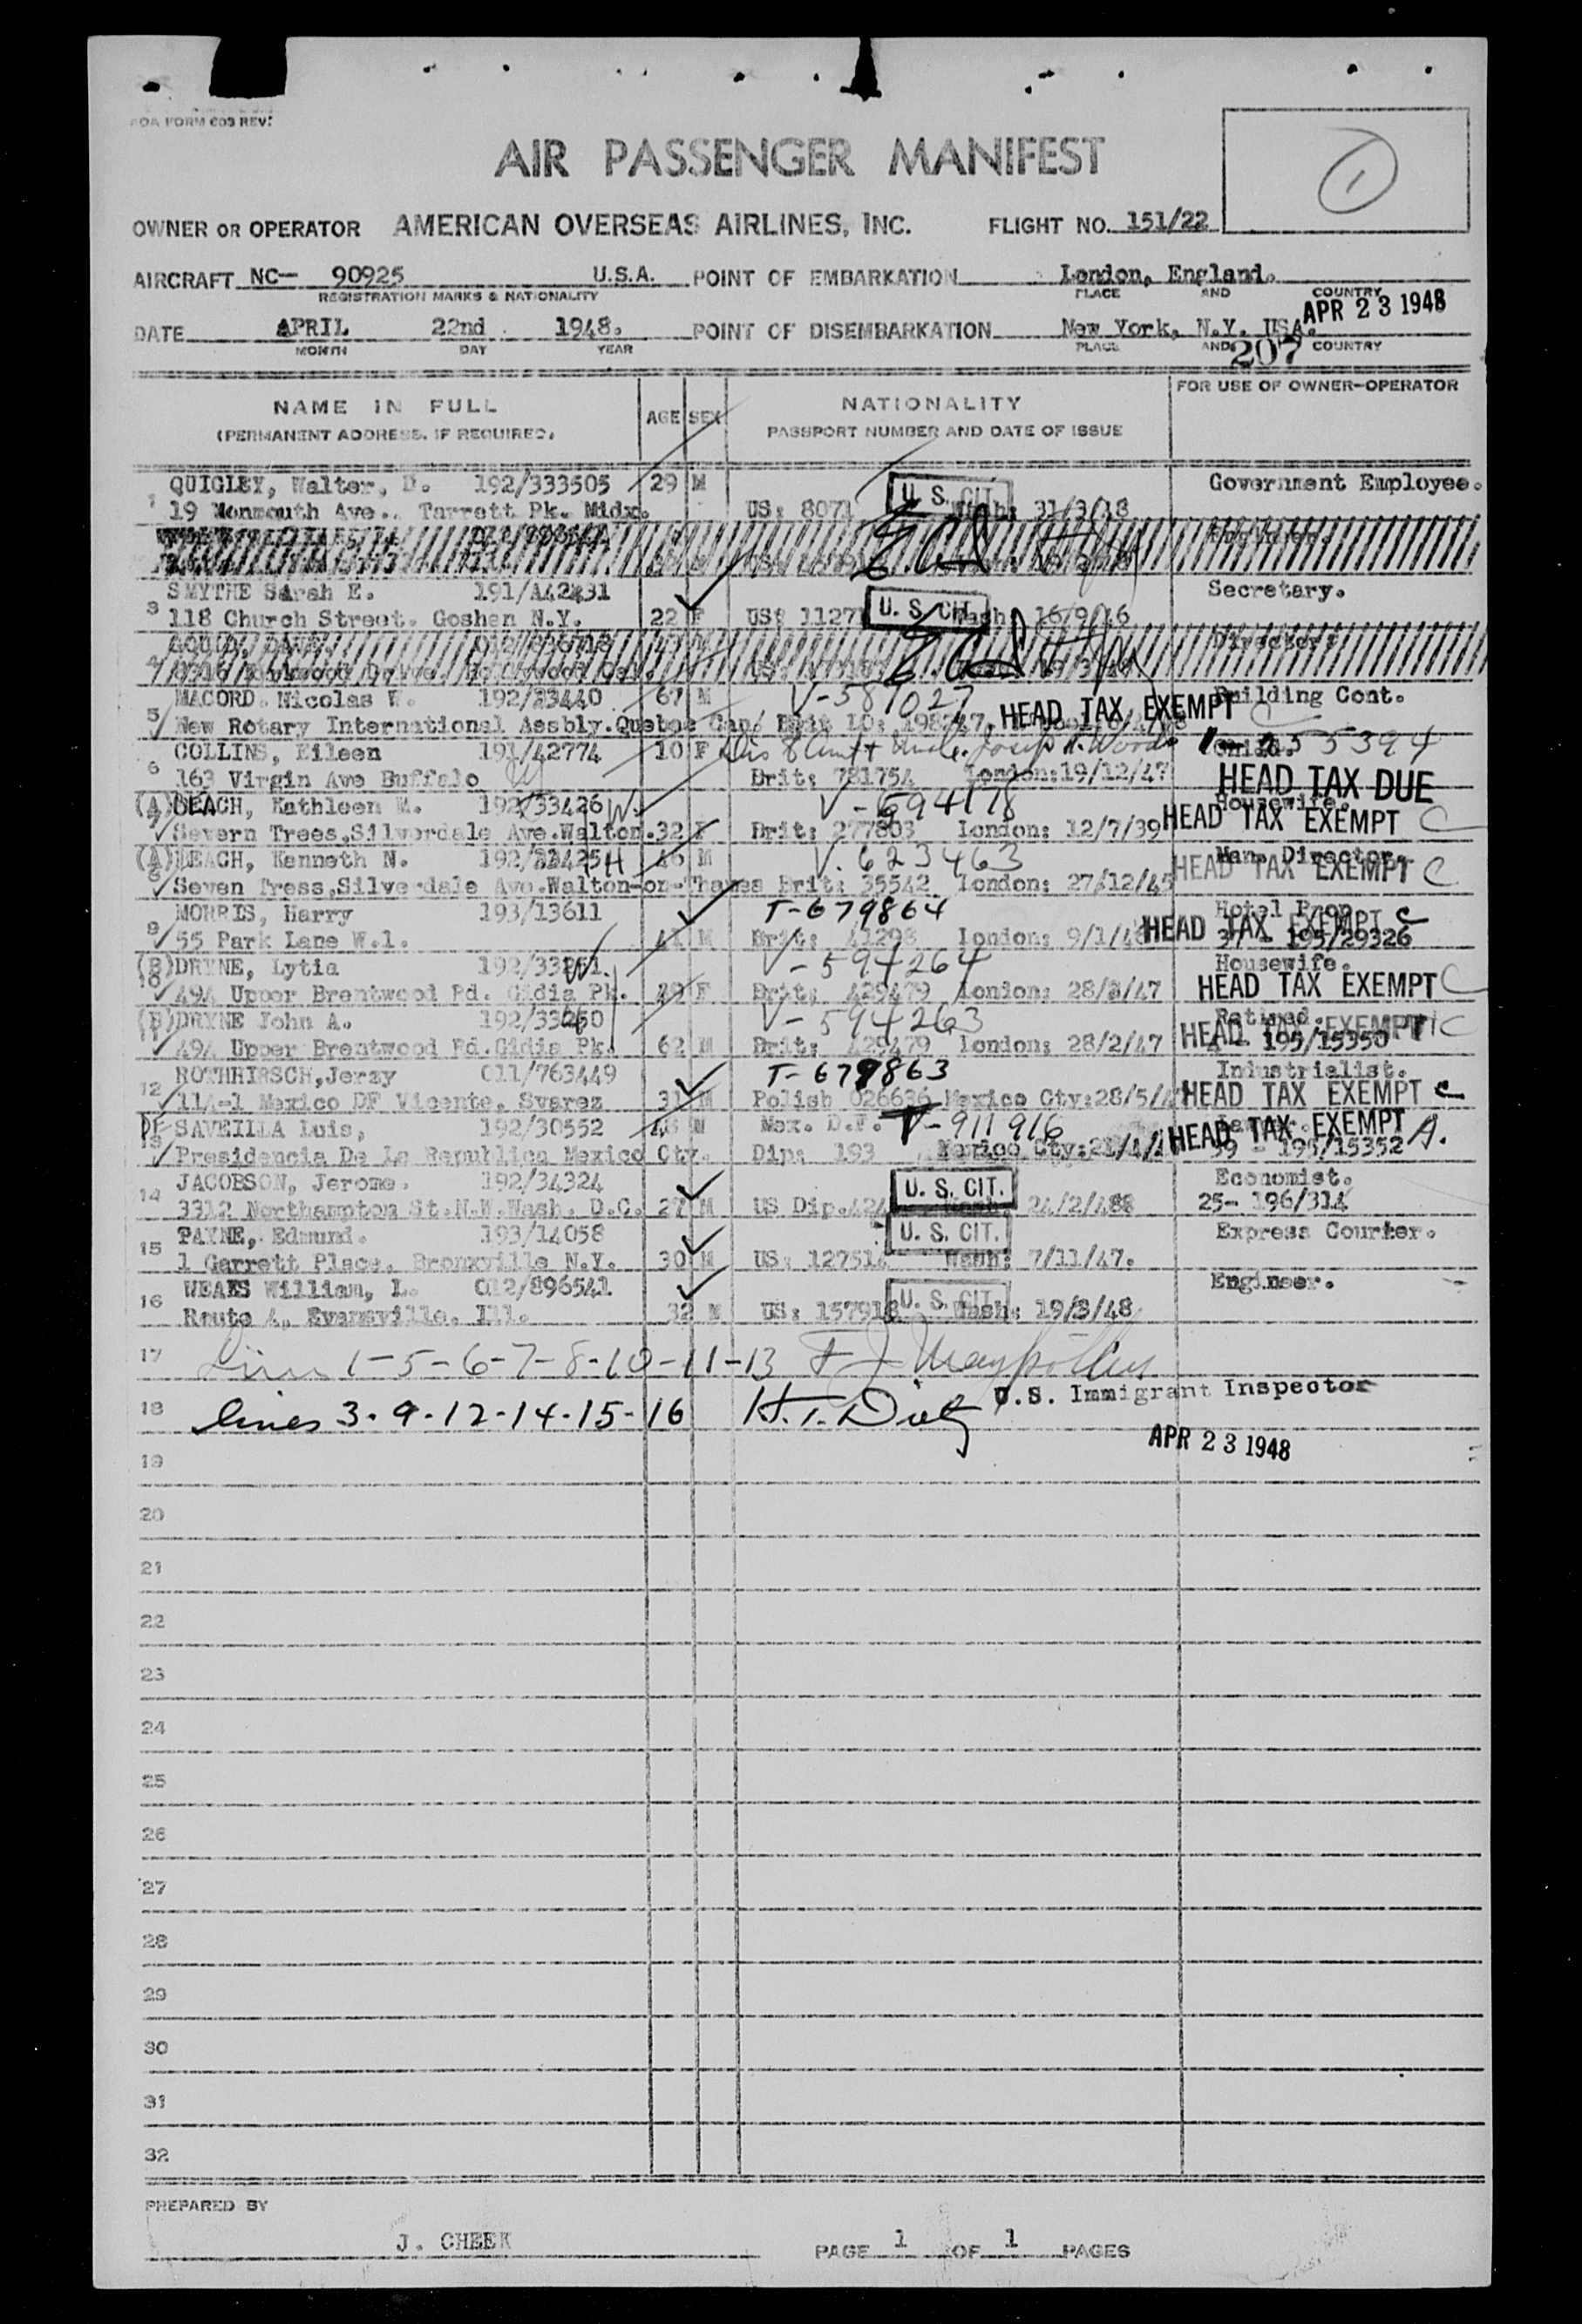 FORM 603 REV.
1
AIR PASSENGER MANIFEST
OWNER OR OPERATOR AMERICAN OVERSEAS AIRLINES, INC. FLIGHT NO. 151/22
AIRCRAFT NC- 90925 U.S.A. POINT OF EMBARKATION London, England.
REGISTRATION MARKS & NATIONALITY PLACE AND COUNTRY
APR 23 1948
DATE APRIL 22nd 1948. POINT OF DISEMBARKATION New York, N.Y. USA.
MONTH DAY YEAR PLACE AND COUNTRY
207
NAME IN FULL AGE SEX NATIONALITY FOR USE OF OWNER-OPERATOR
(PERMANENT ADDRESS, IF REQUIRED) PASSPORT NUMBER AND DATE OF ISSUE
QUIGLEY, Walter, D. 192/333505 29 M U. S. CIT. Government Employee.
1 19 Monmouth Ave., Tarrett Pk. Midx. US: 8071 31/3/18
SMYTHE Sarah E. 191/A42431 Secretary.
3 118 Church Street. Goshen N.Y. 22 F US: 1127 U. S. CIT. Wash: 16/9/46
4
MACORD Nicolas W. 192/33440 67 M V-587027 Building Cont.
5 New Rotary International Assbly. Quebec Can/ Brit HEAD TAX EXEMPT C
COLLINS, Eileen 191/42774 10 F Joseph Woods 555394
6 163 Virgin Ave Buffalo Brit: 781754 London: 19/12/47 HEAD TAX DUE
(A) LEACH, Kathleen M. 192/33426 W. V-694178 Housewife.
7 Severn Trees, Silverdale Ave. Walton. 32 F Brit: 277803 London: 12/7/39 HEAD TAX EXEMPT C
(A) LEACH, Kenneth N. 192/33425 H 46 M V. 623463 Man. Director.
8 Seven Tress, Silverdale Ave. Walton-on-Thames Brit: 35542 London: 27/12/45 HEAD TAX EXEMPT C
MORRIS, Harry 193/13611 T-679864 Hotel Prop.
9 55 Park Lane W.1. M Brit: 41298 London: 9/1/48 HEAD TAX EXEMPT C
37 - 195/29326
(B) DRYNE, Lytia 192/33251 W. V-594264 Housewife.
10 49A Upper Brentwood Rd. Gidia Pk. F Brit: 429479 London: 28/2/47 HEAD TAX EXEMPT C
(B) DRYNE John A. 192/33250 V-594263 Retired.
11 49A Upper Brentwood Rd. Gidia Pk. 62 M Brit: 429479 London: 28/2/47 HEAD TAX EXEMPT C
195/15350
ROTHHIRSCH, Jerzy 011/763449 T-679863 Industrialist.
12 11A-1 Mexico DF Vicente, Svarez 31 M Polish 026636 Mexico Cty: 28/5/ HEAD TAX EXEMPT C
SAVEILLA Luis, 192/30552 48 M Mex. D.F. V-911916 HEAD TAX EXEMPT A.
13 Presidencia De La Republica Mexico Cty. Dip: 193 Mexico Cty: 39 - 195/15352
JACOBSON, Jerome. 192/34324 U. S. CIT. Economist.
14 3312 Northampton St. N.W. Wash. D.C. 27 M US Dip. 24/2/48 25- 196/314
PAYNE, Edmund. 193/14058 U. S. CIT. Express Courier.
15 1 Garrett Place, Bronxville N.Y. 30 M US: 127514 Wash: 7/11/47.
WEAKS William, L. 012/896541 Engineer.
16 Route 4, Evansville. Ill. 32 M US: 157918 U. S. CIT. Wash: 19/3/48
17 Lines 1-5-6-7-8-10-11-13
U.S. Immigrant Inspector
18 lines 3-9-12-14-15-16 H.T. Dietz
APR 23 1948
19
20
21
22
23
24
25
26
27
28
29
30
31
32
PREPARED BY
J. CHEEK PAGE 1 OF 1 PAGES